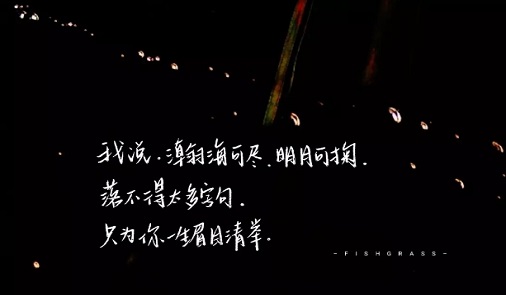 我说.瀚海可尽.明月可掬.
落不得太多字句.
只为你一生眉目清举.
-FISHGRASS-